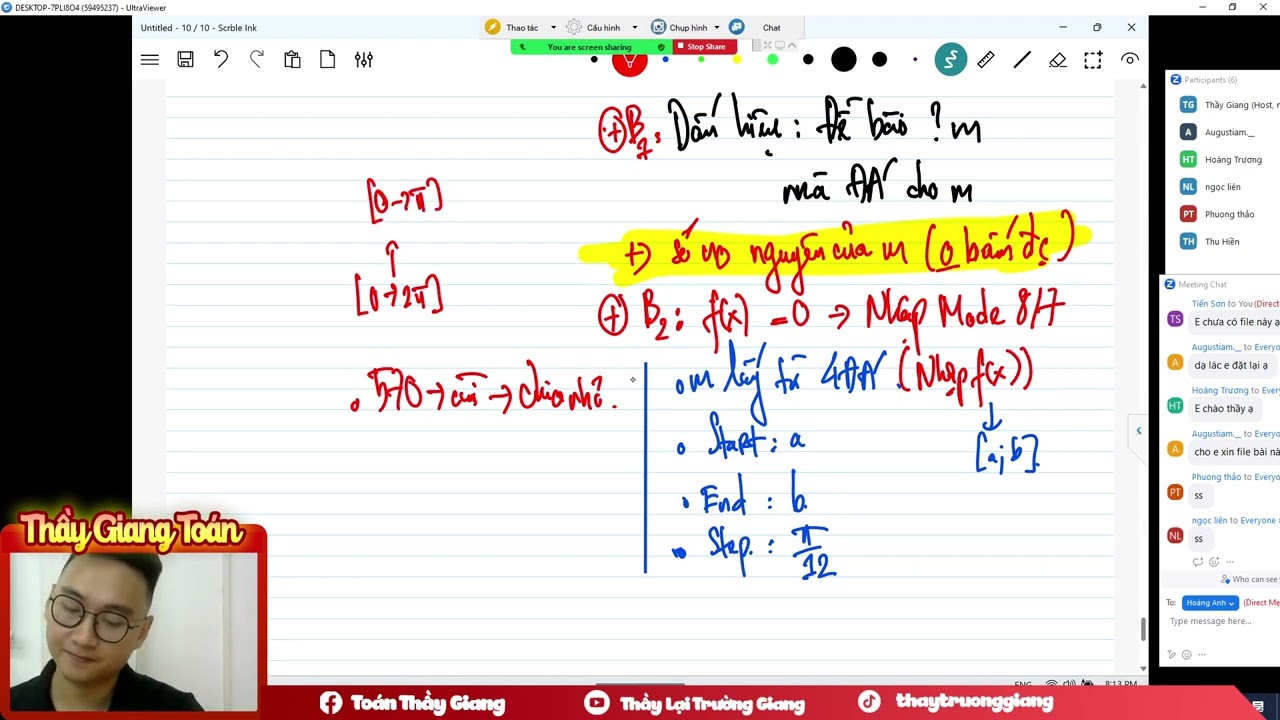 DESKTOP-7PLI8O4 (59495237) - UltraViewer
Untitled - 10 / 10 - Scrble Ink
Thao tác
Cấu hình
Chụp hình
Chat
You are screen sharing
Stop Share
⊕ B1: Dấu hiệu: Đề bảo ? m
mà ĐA cho m
+) số ng nguyên của m (0 bấm đc)
⊕ B2: f(x) = 0 → Nhập Mode 8/7
[0→π]
[0→2π]
• 570 → cũ → chia nhỏ.
• m lấy từ 4ĐA. (Nhập f(x))
[a; b]
• Start: a
• End: b
• Step: π/12
Participants (6)
TG Thầy Giang (Host, m
A Augustiam.__
HT Hoàng Trương
NL ngọc liên
PT Phuong thảo
TH Thu Hiền
Meeting Chat
Tiến Sơn to You (Direct
TS E chưa có file này ạ
Augustiam.__ to Everyo
A dạ lác e đặt lại ạ
Hoàng Trương to Everyo
HT E chào thầy ạ
Augustiam.__ to Everyo
A cho e xin file bài nà
Phuong thảo to Everyo
PT ss
ngọc liên to Everyone
NL ss
Who can see
To: Hoàng Anh (Direct Me
Type message here...
ENG
8:13 PM
Thầy Giang Toán
Toán Thầy Giang
Thầy Lại Trường Giang
thaytruonggiang